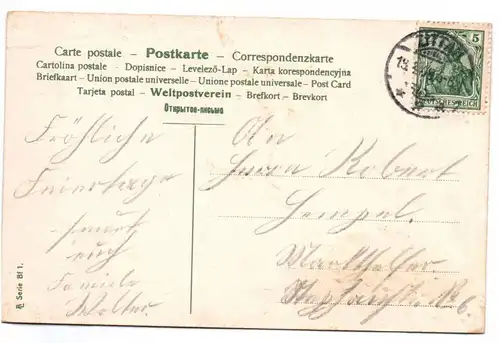 Carte postale – Postkarte – Correspondenzkarte
Cartolina postale - Dopisnice - Levelező-Lap - Karta korespondencyjna
Briefkaart - Union postale universelle - Unione postale universale - Post Card
Tarjeta postal - Weltpostverein - Brefkort - Brevkort
Открытое-письмо
5
DEUTSCHES REICH
Fröhliche
Feiertage
euch
Familie
Walter
An
Herrn Robert
Hempel
Markthelfer
Serie Bf 1.